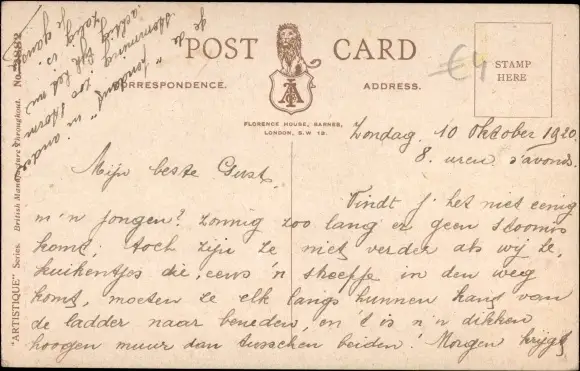 POST CARD
CORRESPONDENCE.
ADDRESS.
€4
STAMP
HERE
FLORENCE HOUSE, BARNES,
LONDON, S.W 13.
"ARTISTIQUE" Series. British Manufacture Throughout. No.
Zondag, 10 Oktober 1920.
8. uren s'avonds.
Mijn beste Gust.
Vindt J' het niet eenig
m'n jongen? Zonnig zoo lang er geen
komt; toch zijn ze niet verder als wij 2e,
kuikentjes die, eens 'n in den weg
komt, moeten ze elk langs hunnen kand van
de ladder naar beneden, en 't is n'n dikken
hoogen muur dan tusschen beiden! Morgen krijgt
ge de
stemming